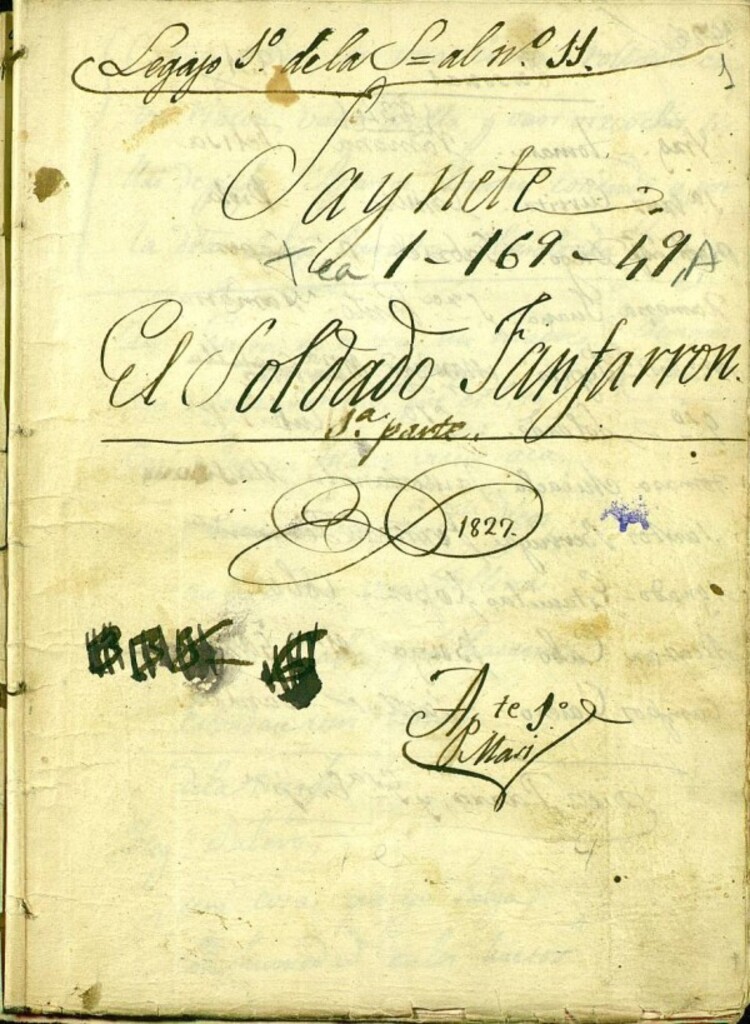 Legajo 1º de la S= al nº 11.
1
Saynete
+ ea 1-169-49, A
El Soldado Fanfarron.
1ª parte.
1827.
Apte 1º